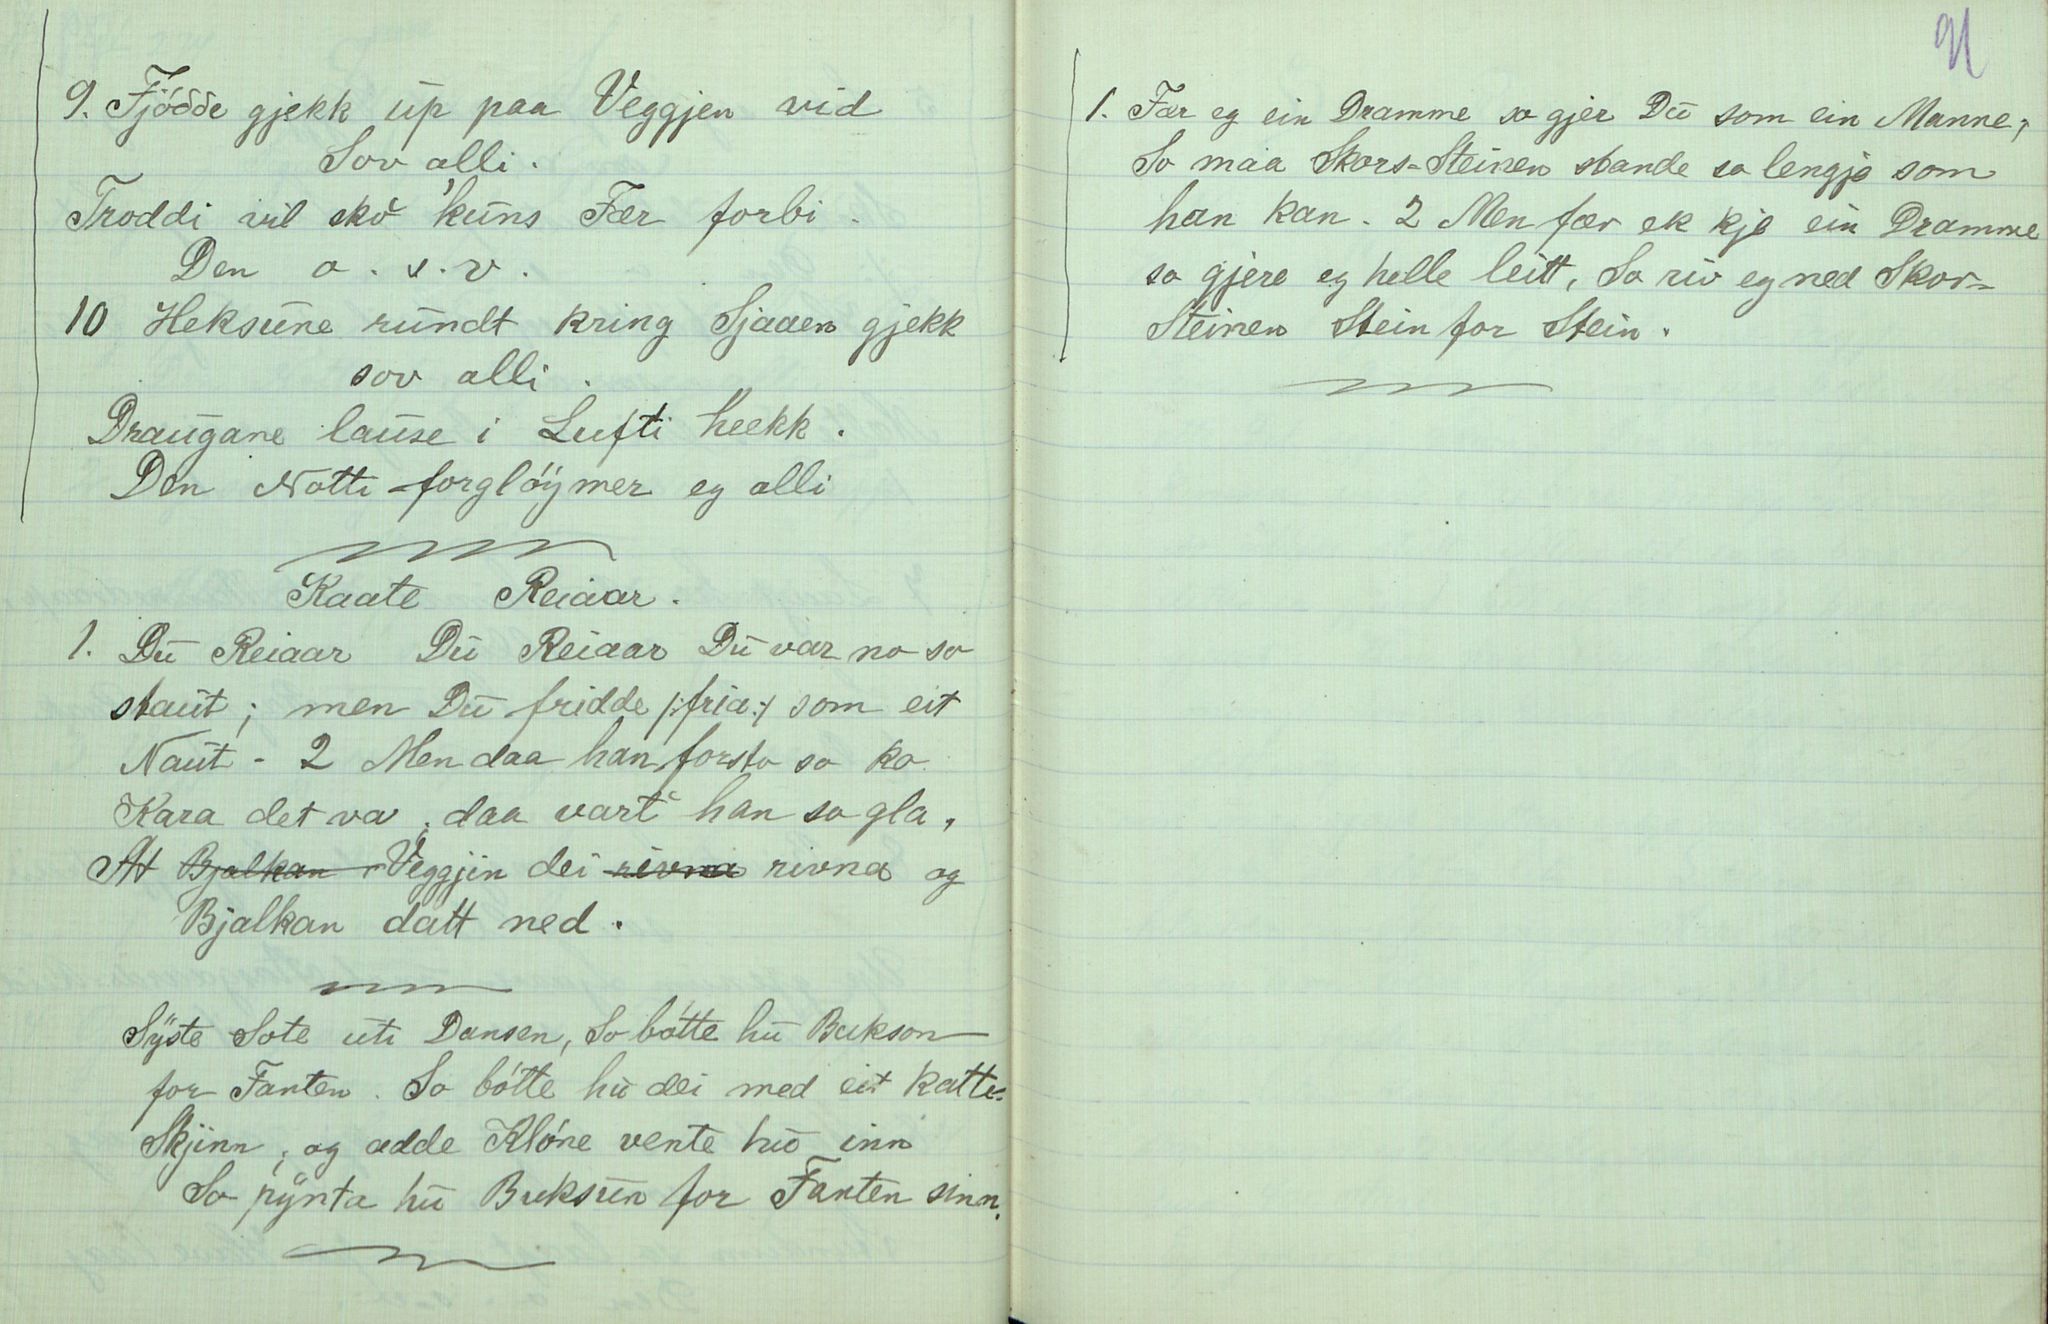 9. Fjódde gjekk up paa Veggjen vid
Sov alli.
Troddi vil sko 'kuns Fær forbi.
Den o. s. v.
10 Heksune rundt kring Sjaaen gjekk
sov alli.
Draugane lause i Lufti heekk.
Den Notti forglöymer eg alli
Kaate Reiaar.
1. Du Reiaar Du Reiaar Du var no so
staut; men Du fridde /:fria:/ som eit
Naut - 2 Men daa han forsto so ko
Kara det va, daa vart han so gla,
At Bjalkan Veggjin dei rivna rivna og
Bjalkan datt ned.
Syste Sote uti Dansen, So bótte hu Bukson
for Fanten. So bótte hu dei med eit Katte-
Skjinn, og adde Klóne vente hu inn
So pynta hu Buksun for Fanten sinn.
91
1. Fær eg ein Dramme so gjer Du som ein Manne,
So maa Skors-Steinen stande so lengje som
han kan. 2 Men fær ek kje ein Dramme
so gjere eg helle leitt, So riv eg ned Skor-
Steinen Stein for Stein.